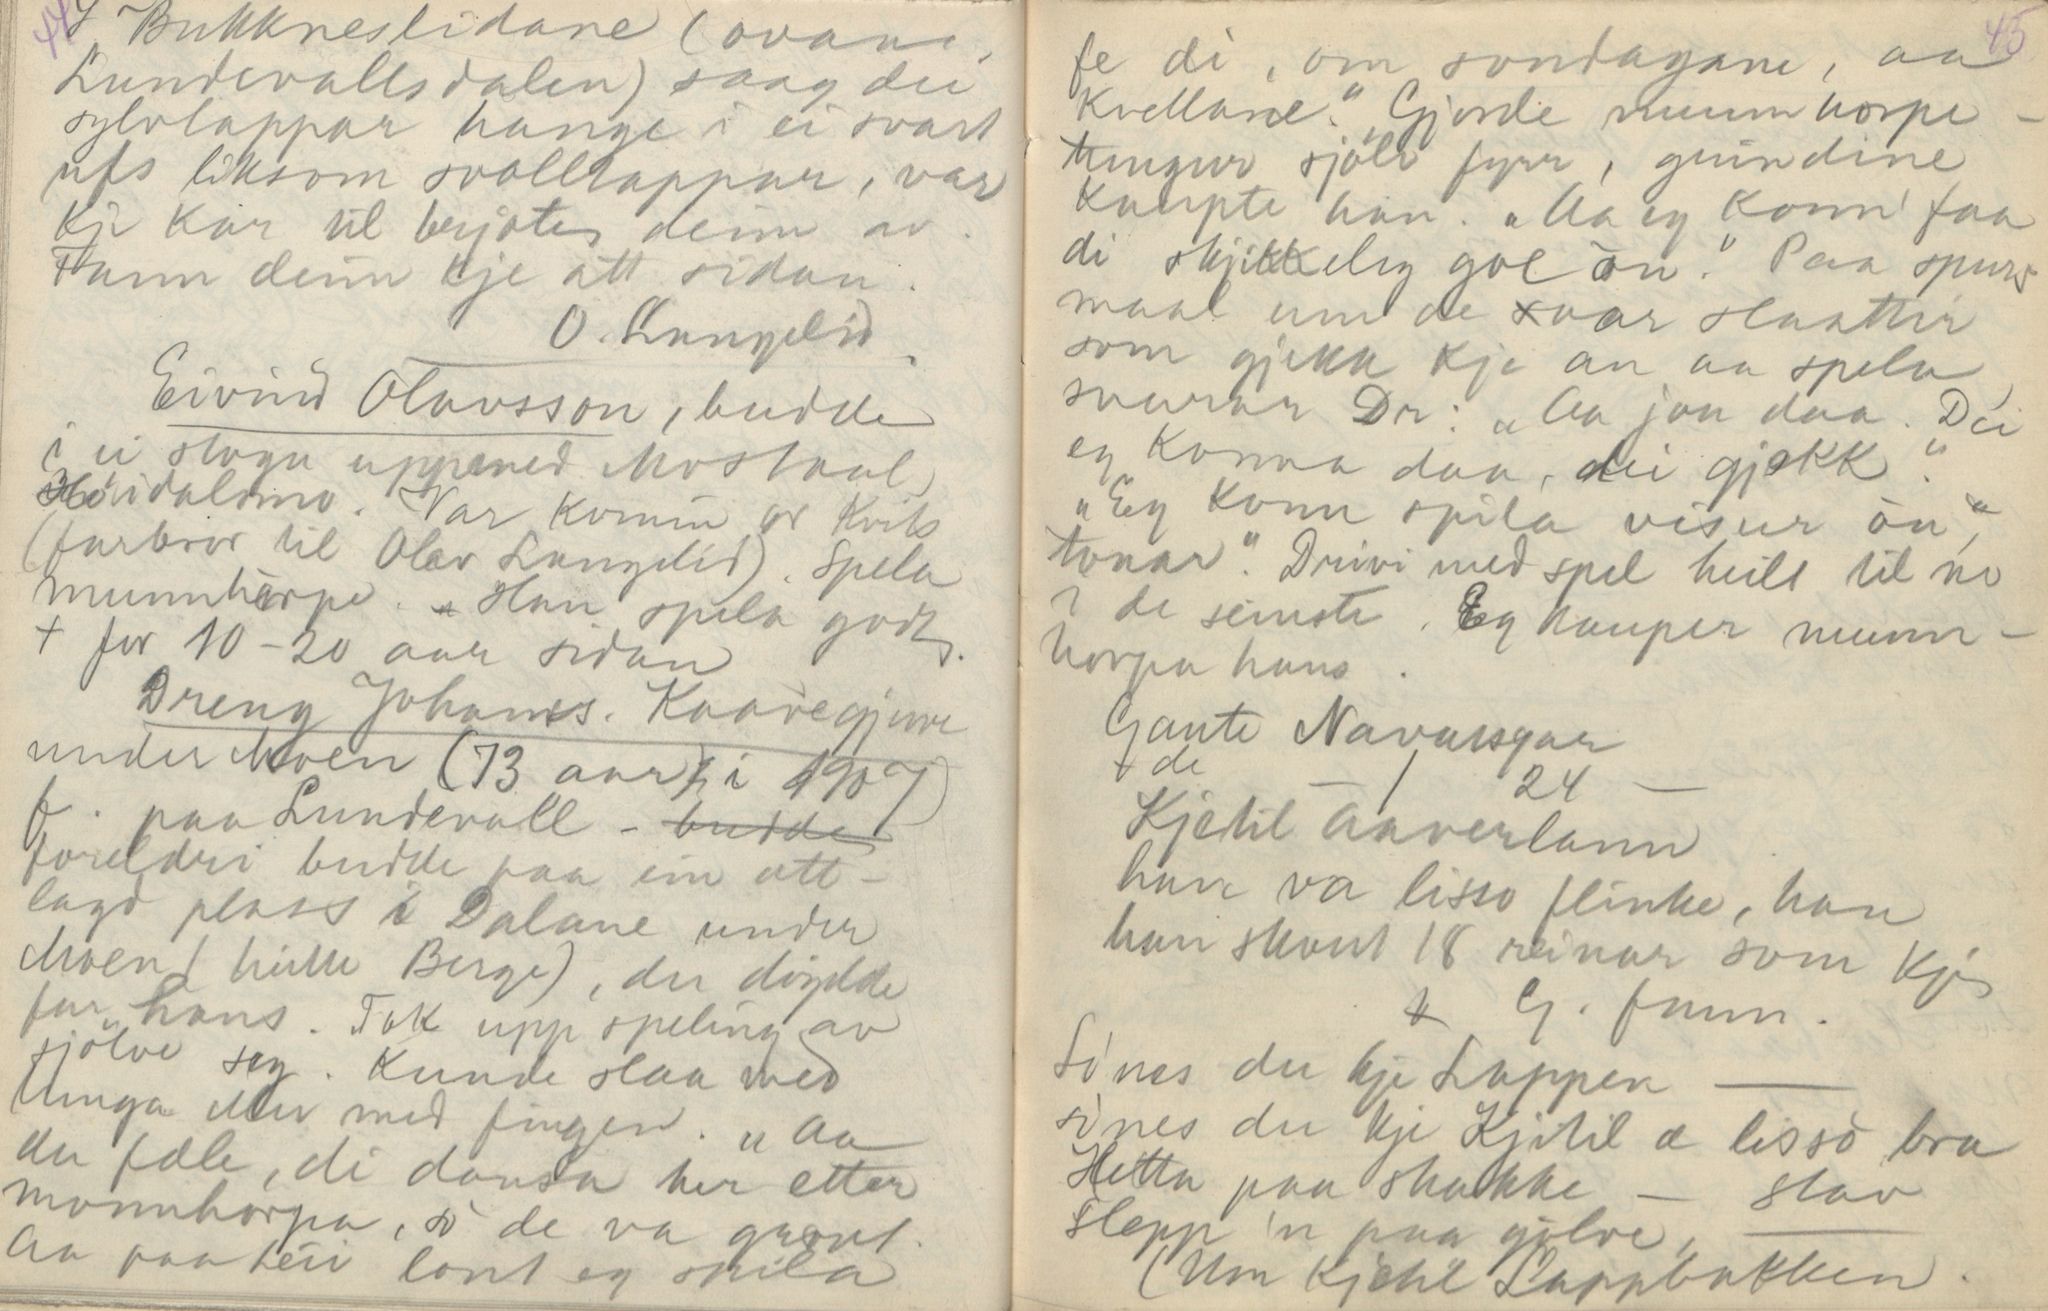 44
I Bukkneslidane (ovani
Lundevallsdalen) saag dei
sylvtappar hange i ei svart
ufs liksom svolltappar, var
kje kar til brjote deim av.
Fann deim kje att sidan.
O. Langelid.
Eivind Olavsson, budde
i ei stogu uppmed Mostaul,
Høidalsmo. Var komin or Kvits
(farbror til Olav Langelid). Spela
munnhorpe. Han spela godt.
+ for 10-20 aar sidan
Dreng Johannes. Kaavegjuve
under Moen (73 aar, i 1907)
f. paa Lundevall - budde
foreldri budde paa ein att-
lagd plass i Dalane under
Moen (heitte Berge), der døydde
far hans. Tok upp speling av
sjølve seg. Kunde slaa med
tunga eller med fingen. "Aa
du fæle, di dansa her etter
monnhorpa, so de va grovt.
Aa paa tei lout eg spila
45
fe di, om sondagane, aa
kvellane." Gjorde munnhorpe-
tungur sjølv fyrr, grindine
kaupte han. "Aa eg konn faa
di skjikkeleg goe òn." Paa spurs-
maal um de var slaattir
som gjekk kje an aa spela,
svarar Dr: "Aa jau daa. Dei
eg konna daa, dei gjekk."
"Eg konn spila visur òn,"
tonar". Drivi med spel heilt til no
i de seinste. Eg kauper munn-
horpa hans.
Gaute Navarsgar
+ de — 1 24 —
Kjetil Aaverlann
han va lisso flinke, han
han skout 18 reinar som kje
G. fann.
Sines du kje Lappen —
sines du kje Kjetil æ lissò bra
Hetta paa skakke — stav
slepp 'n paa gølve, —
(Um Kjetil Lappbakken.